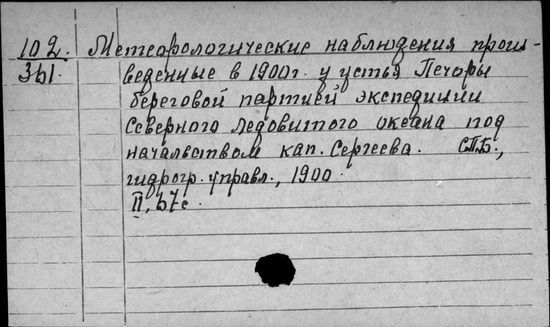 102. Метеорологические наблюдения произ-
361. веденные в 1900г. у устья Печоры
береговой партией экспедиции
Северного Ледовитого океана под
начальством кап. Сергеева. СПБ.,
гидрогр. управл., 1900.
II, 67с.